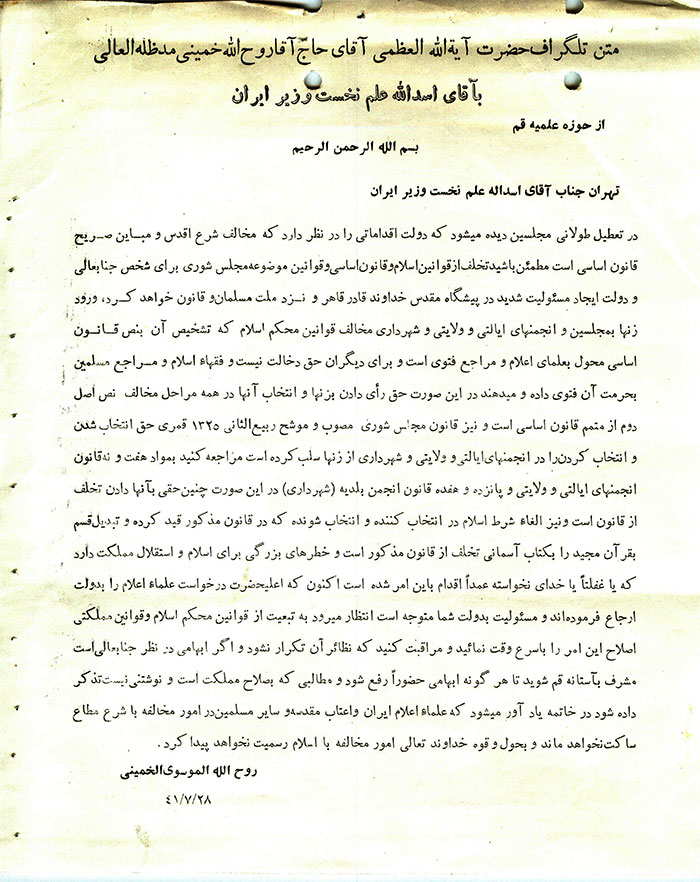 متن تلگراف حضرت آیة الله العظمی آقای حاجّ آقا روح الله خمینی مدظله العالی
بآقای اسدالله علم نخست وزیر ایران
از حوزه علمیه قم
بسم الله الرحمن الرحیم
تهران جناب آقای اسداله علم نخست وزیر ایران
در تعطیل طولانی مجلسین دیده میشود که دولت اقداماتی را در نظر دارد که مخالف شرع اقدس و مباین صریح
قانون اساسی است مطمئن باشید تخلف از قوانین اسلام و قانون اساسی و قوانین موضوعه مجلس شوری برای شخص جنابعالی
و دولت ایجاد مسئولیت شدید در پیشگاه مقدس خداوند قادر قاهر و نزد ملت مسلمان و قانون خواهد کرد، ورود
زنها بمجلسین و انجمنهای ایالتی و ولایتی و شهرداری مخالف قوانین محکم اسلام که تشخیص آن بنص قانون
اساسی محول بعلمای اعلام و مراجع فتوی است و برای دیگران حق دخالت نیست و فقهاء اسلام و مراجع مسلمین
بحرمت آن فتوی داده و میدهند در این صورت حق رأی دادن بزنها و انتخاب آنها در همه مراحل مخالف نص اصل
دوم از متمم قانون اساسی است و نیز قانون مجلس شوری مصوب و موشح ربیع الثانی ۱۳۲۵ قمری حق انتخاب شدن
و انتخاب کردن را در انجمنهای ایالتی و ولایتی و شهرداری از زنها سلب کرده است مراجعه کنید بمواد هفت و نه قانون
انجمنهای ایالتی و ولایتی و پانزده و هفده قانون انجمن بلدیه (شهرداری) در این صورت چنین حقی بآنها دادن تخلف
از قانون است و نیز الغاء شرط اسلام در انتخاب کننده و انتخاب شونده که در قانون مذکور قید کرده و تبدیل قسم
بقرآن مجید را بکتاب آسمانی تخلف از قانون مذکور است و خطرهای بزرگی برای اسلام و استقلال مملکت دارد
که یا غفلتاً یا خدای نخواسته عمداً اقدام باین امر شده است اکنون که اعلیحضرت درخواست علماء اعلام را بدولت
ارجاع فرموده‌اند و مسئولیت بدولت شما متوجه است انتظار میرود به تبعیت از قوانین محکم اسلام و قوانین مملکتی
اصلاح این امر را باسرع وقت نمائید و مراقبت کنید که نظائر آن تکرار نشود و اگر ابهامی در نظر جنابعالی است
مشرف بآستانه قم شوید تا هر گونه ابهامی حضوراً رفع شود و مطالبی که بصلاح مملکت است و نوشتنی نیست تذکر
داده شود در خاتمه یاد آور میشود که علماء اعلام ایران و اعتاب مقدسه و سایر مسلمین در امور مخالفه با شرع مطاع
ساکت نخواهد ماند و بحول و قوه خداوند تعالی امور مخالفه با اسلام رسمیت نخواهد پیدا کرد.
روح الله الموسوی الخمینی
۴۱/۷/۲۸